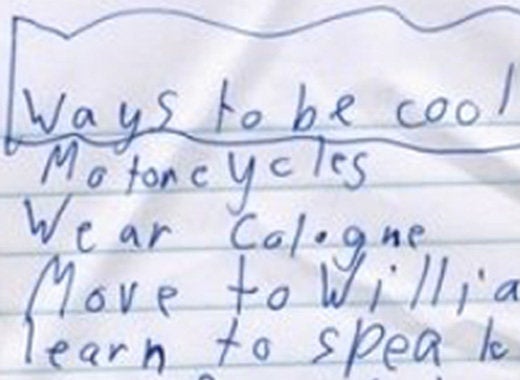 Ways to be cool
Motorcycles
Wear Cologne
Move to Willia
learn to speak